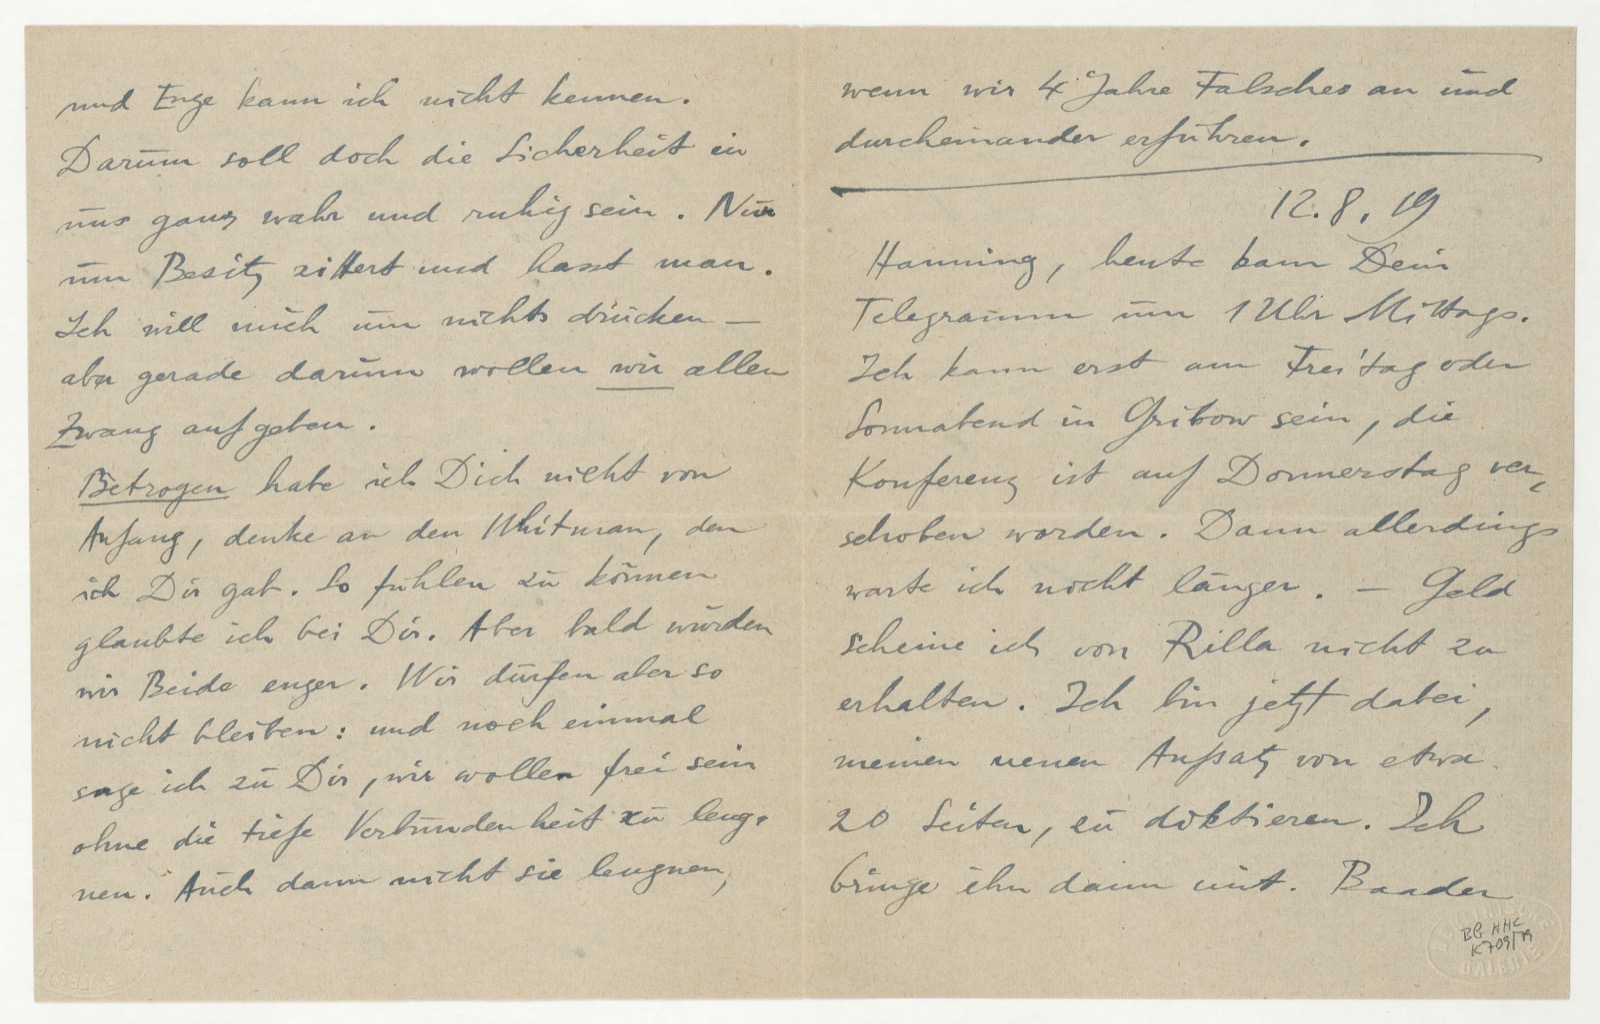 und Enge kann ich nicht kennen.
Darum soll doch die Sicherheit in
uns ganz wahr und ruhig sein. Nur
um Besitz zittert und hasst man.
Ich will mich um nichts drücken —
aber gerade darum wollen wir allen
Zwang aufgeben.
Betrogen habe ich Dich nicht von
Anfang, denke an den Whitman, den
ich Dir gab. So fühlen zu können
glaubte ich bei Dir. Aber bald wurden
wir Beide enger. Wir dürfen aber so
nicht bleiben: und noch einmal
sage ich zu Dir, wir wollen frei sein
ohne die tiefe Verbundenheit zu leug-
nen. Auch dann nicht sie leugnen,
wenn wir 4 Jahre Falsches an und
durcheinander erfuhren.
12.8.19
Hanning, heute kam Dein
Telegramm um 1 Uhr Mittags.
Ich kann erst am Freitag oder
Sonnabend in Gribow sein, die
Konferenz ist auf Donnerstag ver-
schoben worden. Dann allerdings
warte ich nicht länger. — Geld
scheine ich von Rilla nicht zu
erhalten. Ich bin jetzt dabei,
meinen neuen Aufsatz von etwa
20 Seiten, zu diktieren. Ich
bringe ihn dann mit. Baader
BG HHC
K 709/79